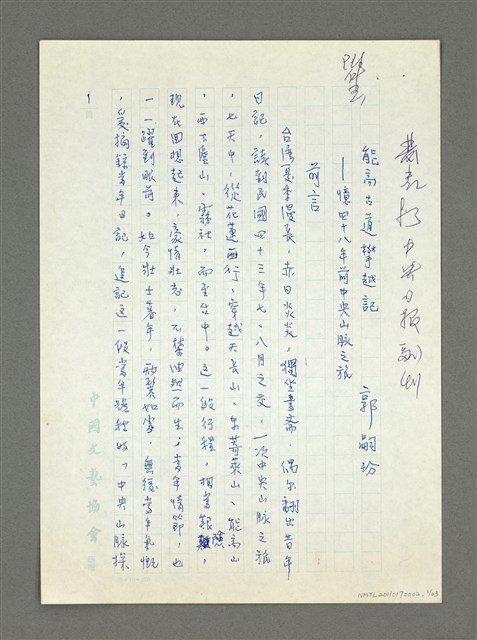 發表於中央日報副刊
能高古道攀越記
——憶四十八年前中央山脈之旅
郭嗣汾
前言
台灣夏季漫長,赤日炎炎,獨坐書齋,偶尔翻出昔年
日記,談到民國四十三年七、八月之交,一次中央山脈之旅
,七天中,從花蓮西行,穿越天長山、奇萊山、能高山
,西下廬山、霧社,而至台中。這一段行程,相當艱險,
現在回想起來,豪情壯志,不禁油然而生;當年情節,也
一一躍到眼前。如今壯士暮年,兩鬢如霜,無復當年氣慨
,爰摘錄當年日記,追記這一段當年雖稱的「中央山脈探
1
中國文藝協會
NMTL20010170002, 1/23